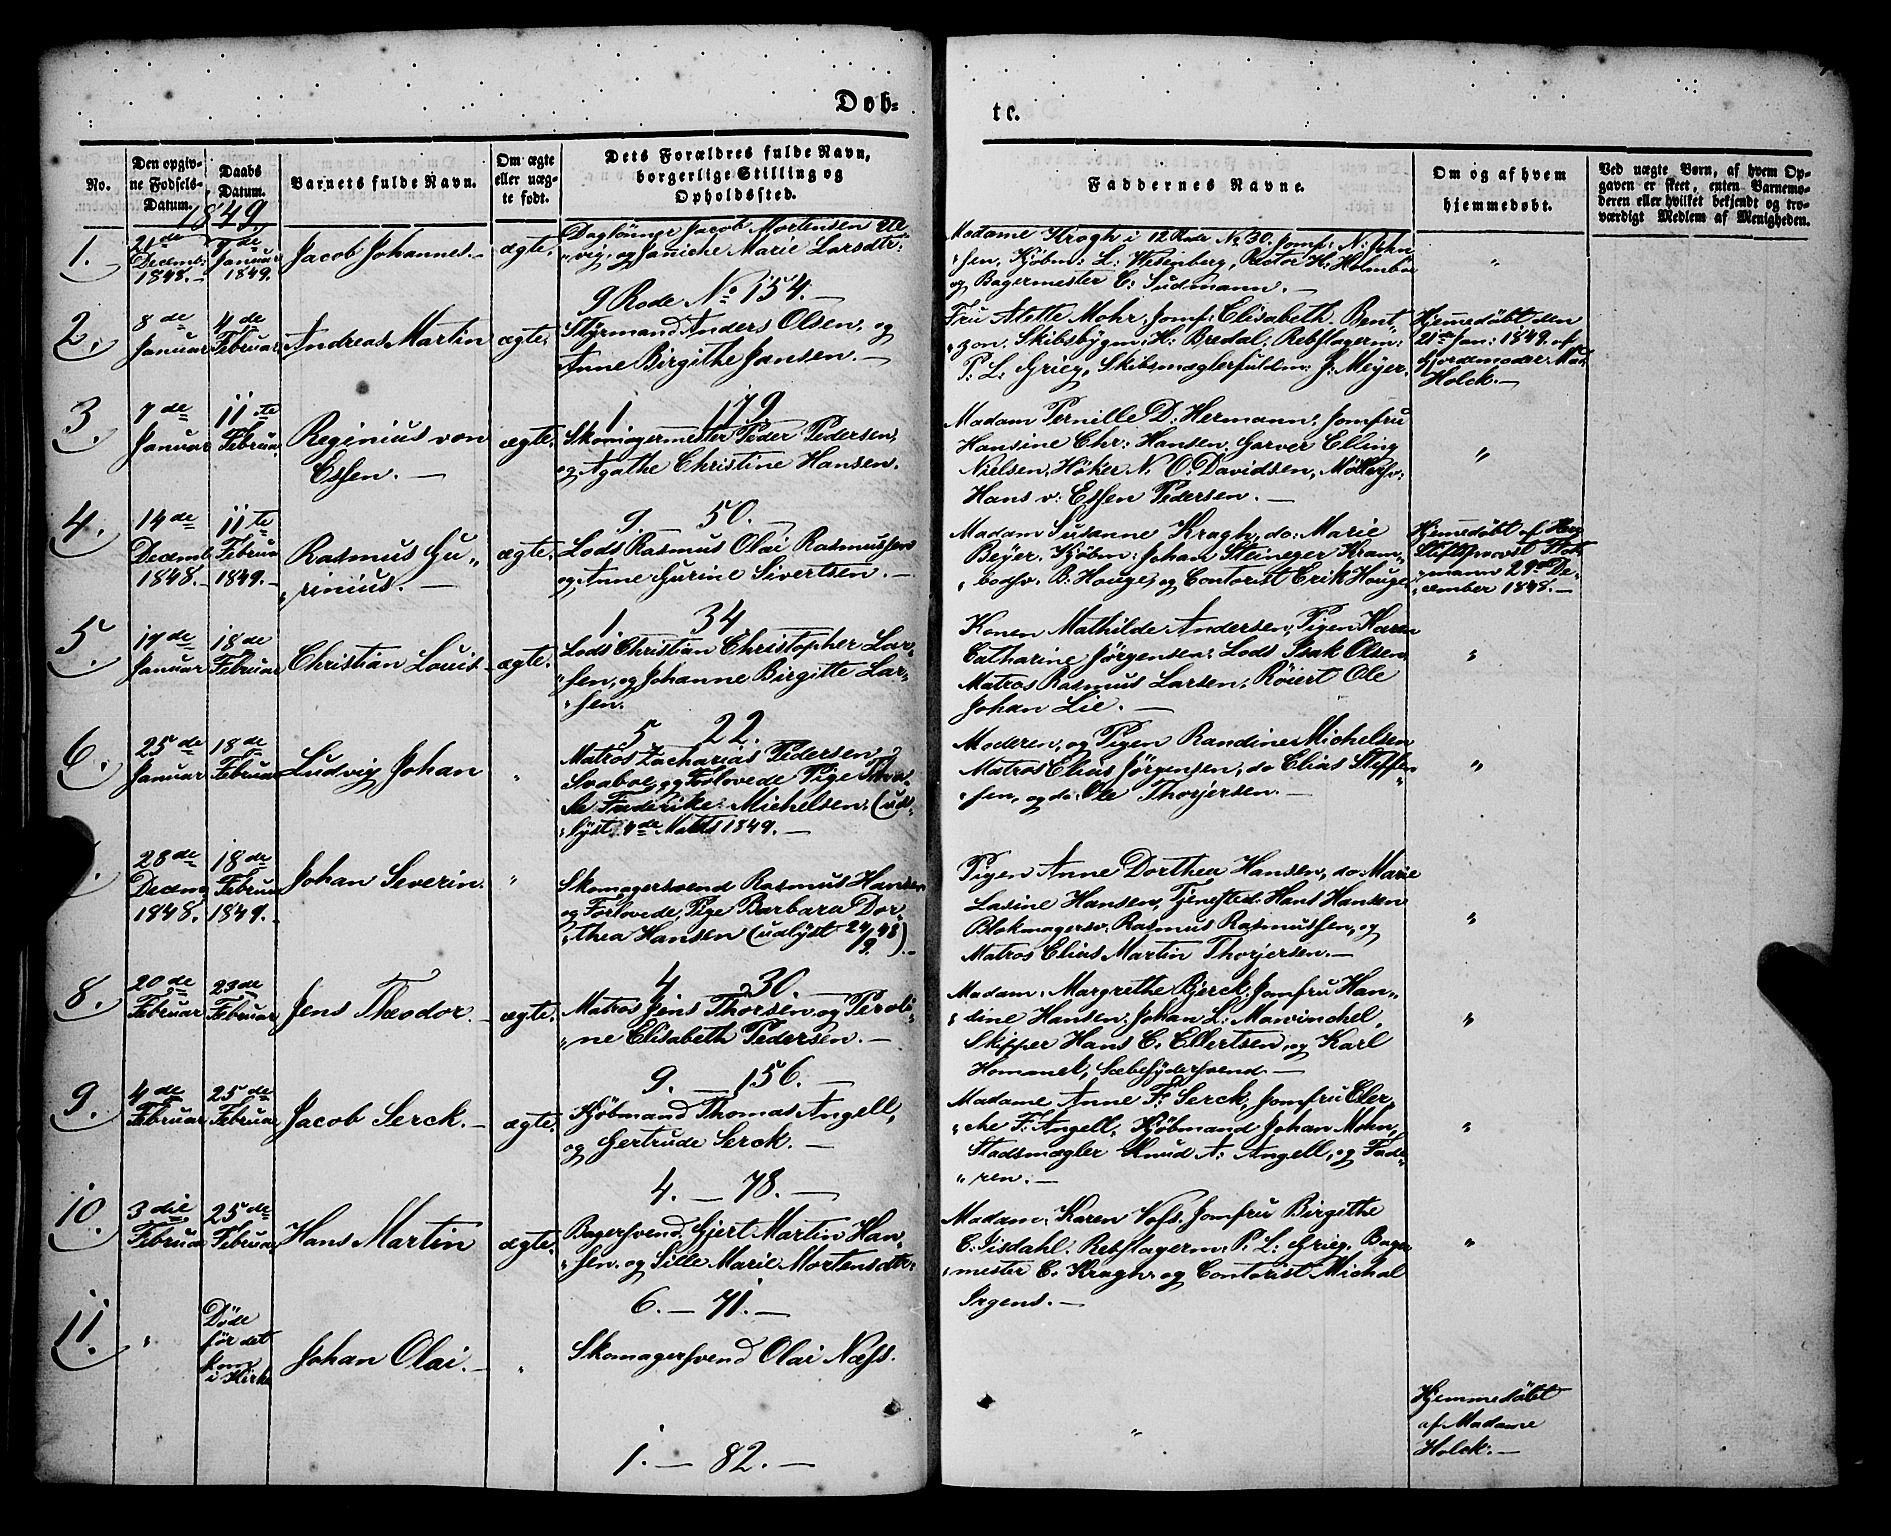 Døb=
te.
No.
Den opgiv-
ne Fødsels-
Datum.
Daabs
Datum.
Barnets fulde Navn.
Om ægte
eller uæg-
te født.
Dets Forældres fulde Navn,
borgerlige Stilling og
Opholdssted.
Faddernes Navne.
Om og af hvem
hjemmedøbt.
Ved uægte Børn, af hvem Op-
gaven er skeet, enten Barnemo-
deren eller hvilket bekjendt og tro-
værdigt Medlem af Menigheden.
1849
1.
21de
Decemb:
1848.
Januar
1849.
Jacob Johannes.
ægte.
Dagløner Jacob Mortensen
vig, og Janiche Marie Larsdtr:
9 Rode No 154.
Madame Kragh i 12 Rode No 30. Jomf: N: John
sen, Kjøbm: L: Wesenberg, Rector H: Holmboe
og Bagermester C: Sudmann.
"
2.
8de
Januar
4de
Februar
Andreas Martin
ægte.
Styrmand Anders Olsen, og
Anne Birgithe Jansen.
1 179
Fru Alette Mohr, Jomf: Elisabeth Bent-
zon, Skibsbygm: H: Bredal, Rebslagerm:
P: L: Grieg, Skibsmæglerfuldm: J: Meyer.
Hjemmedøbt den
21de Jan: 1849. af
Gjordemoder Mad:
Holck.
3.
7de
Januar
11te
Februar
Reginius von
Essen.
ægte.
Skomagermester Peder Pedersen,
og Agathe Christine Hansen.
9. 50.
Madam Pernille D: Hermann, Jomfru
Hansine Chr: Hansen, Garver Elling
Nielsen, Høker N. O. Davidsen, Møllersv:
Hans v: Essen Pedersen.
"
4.
14de
Decemb:
1848.
11te
Februar
1849.
Rasmus Gu-
rinius.
ægte.
Lods Rasmus Olai Rasmussen
og Anne Gurine Sivertsen.
1. 34.
Madam Susanne Kragh, do: Marie
Beyer, Kjøbm: Johan Steineger, Kram-
bodsv. B: Houge, og Contorist Erik Houge
Hjemmedøbt af Herr
Stiftsprovst
mann 29de De-
cember 1848.
5.
17de
Januar
18de
Februar
Christian Louis
ægte.
Lods Christian Christopher Lar-
sen, og Johanne Birgitte Lar-
sen.
5 22.
Konen Mathilde Andersen, Pigen Karen
Catharine Jørgensen, Lods Isak Olsen,
Matros Rasmus Larsen, Røiert Ole
Johan Lie.
"
6.
25de
Januar
18de
Februar
Ludvig Johan
"
Matros Zacharias Pedersen
Svaboe, og Forlovede Pige
Frederike Michelsen, (ud-
lyst 4de Marts 1849.
Moderen, og Pigen Randine Michelsen
Matros Elias Jørgensen, do Elias Steffen
sen, og do: Ole Thorjersen.
"
28de
Decemb
1848.
18de
Februar
1849.
Johan Severin.
"
Skomagersvend Rasmus Hansen
og Forlovede, Pige Barbara Dor-
thea Hansen (udlyst 24/9 48).
4 30.
Pigen Anne Dorthea Hansen, do: Marie
Lasine Hansen, Tjenested: Hans Hansen
Blokmagersv: Rasmus Rasmussen, og
Matros Elias Martin Thorjersen.
"
8.
20de
Februar
23de
Februar
Jens Theodor.
ægte.
Matros Jens Thorsen og Peroli-
ne Elisabeth Pedersen.
9. 156.
Madam: Margrethe Bjerck, Jomfru Han-
dine Hansen, Johan L: Marvinchel,
Skipper Hans C. Ellertsen, og Karl
Hommel, Sæbesydersvend.
"
9.
4de
Februar
25de
Februar
Jacob Serck.
ægte.
Kjøbmand Thomas Angell,
og Gertrude Serck.
4. 78.
Madame Anne F: Serck, Jomfru Eler,
che F: Angell, Kjøbmand Johan Mohn,
Stadsmægler Knud A: Angell, og Fade-
ren.
"
10.
3die
Februar
25de
Februar
Hans Martin
ægte.
Bagersvend Gjert Martin Han-
sen, og Sille Marie Mortensdtr:
6. 71.
Madam: Karen Vofs, Jomfru Birgithe
C: Isdahl, Rebslagerm: P. L: Grieg, Bager
mester C. Kragh, og Contorist Michal
Irgens.
"
11.
"
Døde
før det
kom
i Kirke
Johan Olai.
"
Skomagersvend Olai Næss.
1. 82.
"
Hjemmedøbt
af Madame
Holck.